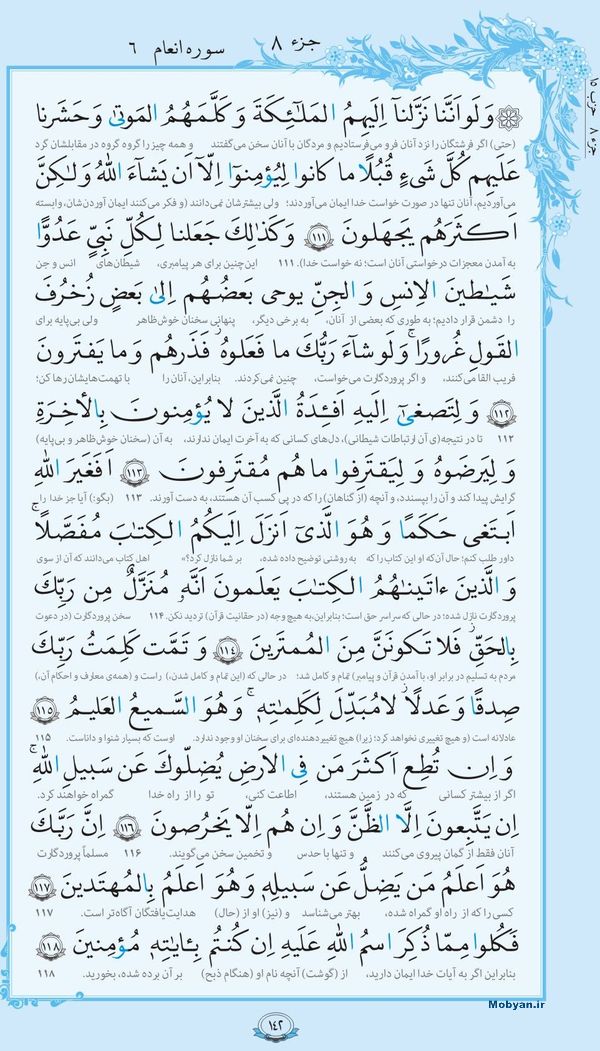 جزء ۸
سوره انعام ۶
جزء ۸ حزب ۱۵
وَلَو اَنَّنا نَزَّلنآ اِلَيهِمُ المَلٰٓئِكَةَ وَ كَلَّمَهُمُ المَوتىٰ وَ حَشَرنا
(حتی) اگر فرشتگان را نزد آنان فرو می‌فرستادیم و مردگان با آنان سخن می‌گفتند و همه چیز را گروه گروه در مقابلشان گرد
عَلَيهِم كُلَّ شَىءٍ قُبُلًا ما كانوا لِيُؤمِنوٓا اِلّآ اَن يَشآءَ اللهُ وَلٰكِنَّ
می‌آوردیم، آنان تنها در صورت خواست خدا ایمان می‌آوردند؛ ولی بیشترشان نمی‌دانند (و فکر می‌کنند ایمان آوردن‌شان، وابسته
اَكثَرَهُم يَجهَلونَ ۱۱۱ وَ كَذٰلِكَ جَعَلنا لِكُلِّ نَبِىٍّ عَدُوًّا
به آمدن معجزات درخواستی آنان است؛ نه خواست خدا). ۱۱۱ این‌چنین برای هر پیامبری، شیطان‌های انس و جن
شَيٰطينَ الاِنسِ وَ الجِنِّ يوحى بَعضُهُم اِلىٰ بَعضٍ زُخرُفَ
را دشمن قرار دادیم؛ به طوری که بعضی از آنان، به برخی دیگر، پنهانی سخنان خوش‌ظاهر ولی بی‌پایه برای
القَولِ غُرورًا ۚ وَ لَو شآءَ رَبُّكَ ما فَعَلوهُ ۖ فَذَرهُم وَ ما يَفتَرونَ
فریب القا می‌کنند، و اگر پروردگارت می‌خواست، چنین نمی‌کردند. بنابراین، آنان را با تهمت‌هایشان رها کن؛
۱۱۲ وَ لِتَصغىٰٓ اِلَيهِ اَفـِٔدَةُ الَّذينَ لا يُؤمِنونَ بِالأخِرَةِ
۱۱۲ تا در نتیجه(ی آن ارتباطات شیطانی)، دل‌های کسانی که به آخرت ایمان ندارند، به آن (سخنان خوش‌ظاهر و بی‌پایه)
وَ لِيَرضَوهُ وَ لِيَقتَرِفوا ما هُم مُقتَرِفونَ ۱۱۳ اَفَغَيرَ اللهِ
گرایش پیدا کند و آن را بپسندد، و آنچه (از گناهان) را که در پی کسب آن هستند، به دست آورند. ۱۱۳ (بگو:) آیا جز خدا را
اَبتَغى حَكَمًا وَ هُوَ الَّذىٓ اَنزَلَ اِلَيكُمُ الكِتٰبَ مُفَصَّلًا ۚ
داور طلب کنم؛ حال آن‌که او این کتاب را که به روشنی توضیح داده شده، بر شما نازل کرد؟» اهل کتاب می‌دانند که آن از سوی
وَ الَّذينَ ءاتَينٰهُمُ الكِتٰبَ يَعلَمونَ اَنَّهُۥ مُنَزَّلٌ مِن رَبِّكَ
پروردگارت نازل شده؛ در حالی که سراسر حق است؛ بنابراین، به هیچ وجه (در حقانیت قرآن) تردید نکن. ۱۱۴ سخن پروردگارت (در دعوت
بِالحَقِّ ۖ فَلا تَكونَنَّ مِنَ المُمتَرينَ ۱۱۴ وَ تَمَّت كَلِمَتُ رَبِّكَ
مردم به تسلیم در برابر او، با آمدن قرآن و پیامبر) تمام و کامل شد؛ در حالی که (این تمام و کامل شدن،) راست و (همه‌ی معارف و احکام آن،)
صِدقًا وَ عَدلًا ۚ لا مُبَدِّلَ لِكَلِمٰتِهِۦ ۚ وَ هُوَ السَّميعُ العَليمُ ۱۱۵
عادلانه است (و هیچ تغییری نخواهد کرد؛ زیرا) هیچ تغییردهنده‌ای برای سخنان او وجود ندارد. اوست که بسیار شنوا و داناست. ۱۱۵
وَ اِن تُطِع اَكثَرَ مَن فِى الاَرضِ يُضِلّوكَ عَن سَبيلِ اللهِ ۚ
اگر از بیشتر کسانی که در زمین هستند، اطاعت کنی، تو را از راه خدا گمراه خواهند کرد.
اِن يَتَّبِعونَ اِلَّا الظَّنَّ وَ اِن هُم اِلّا يَخرُصونَ ۱۱۶ اِنَّ رَبَّكَ
آنان فقط از گمان پیروی می‌کنند و تنها با حدس و تخمین سخن می‌گویند. ۱۱۶ مسلماً پروردگارت
هُوَ اَعلَمُ مَن يَضِلُّ عَن سَبيلِهِۦ ۖ وَ هُوَ اَعلَمُ بِالمُهتَدينَ ۱۱۷
کسی را که از راه او گمراه شده، بهتر می‌شناسد و (نیز) او از (حال) هدایت‌یافتگان آگاه‌تر است. ۱۱۷
فَكُلوا مِمّا ذُكِرَ اسمُ اللهِ عَلَيهِ اِن كُنتُم بِـٔايٰتِهِۦ مُؤمِنينَ ۱۱۸
بنابراین اگر به آیات خدا ایمان دارید، از (گوشت) آنچه نام او (هنگام ذبح) بر آن برده شده، بخورید. ۱۱۸
۱۴۲
Mobyan.ir